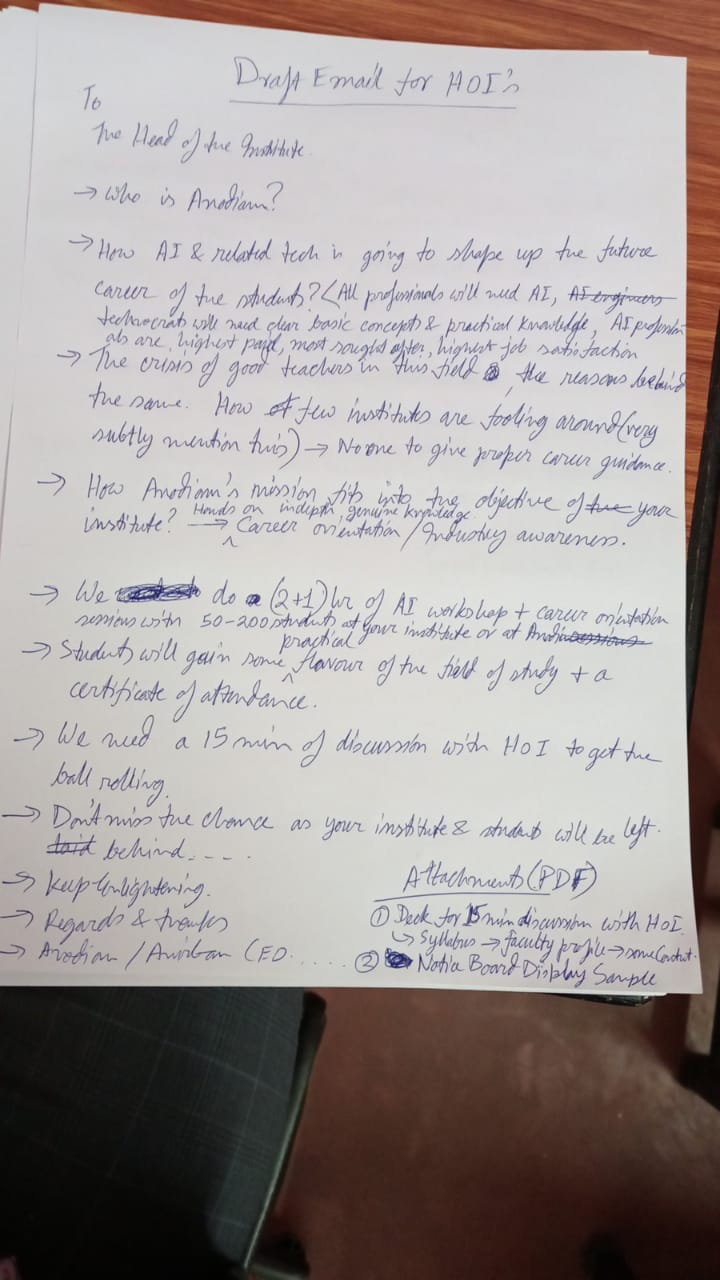 Draft Email for HOI's
To
The Head of the Institute.
→ Who is Anodiam?
→ How AI & related tech is going to shape up the future
career of the students? (All professionals will need AI, AI engineers
technocrats will need clear basic concepts & practical knowledge, AI profession
als are highest paid, most sought after, highest job satisfaction
→ The crisis of good teachers in this field, the reasons behind
the same. How of few institutes are fooling around (very
subtly mention this) → No one to give proper career guidance.
→ How Anodiam's mission fits into the objective of the your
institute? → Hands on indepth, genuine knowledge
Career orientation / Industry awareness.
→ We do a (2+1) hr of AI workshop + career orientation
sessions with 50-200 students at your institute or at
→ Students will gain some practical flavour of the field of study + a
certificate of attendance.
→ We need a 15 min of discussion with HoI to get the
ball rolling.
→ Don't miss the chance as your institute & students will be left
behind....
→ Keep Enlightening.
→ Regards & thanks
→ Anodiam / Anirban CEO.....
Attachments (PDF)
① Deck for 15 min discussion with HoI.
↳ Syllabus → faculty profile → some
② Notice Board Display Sample